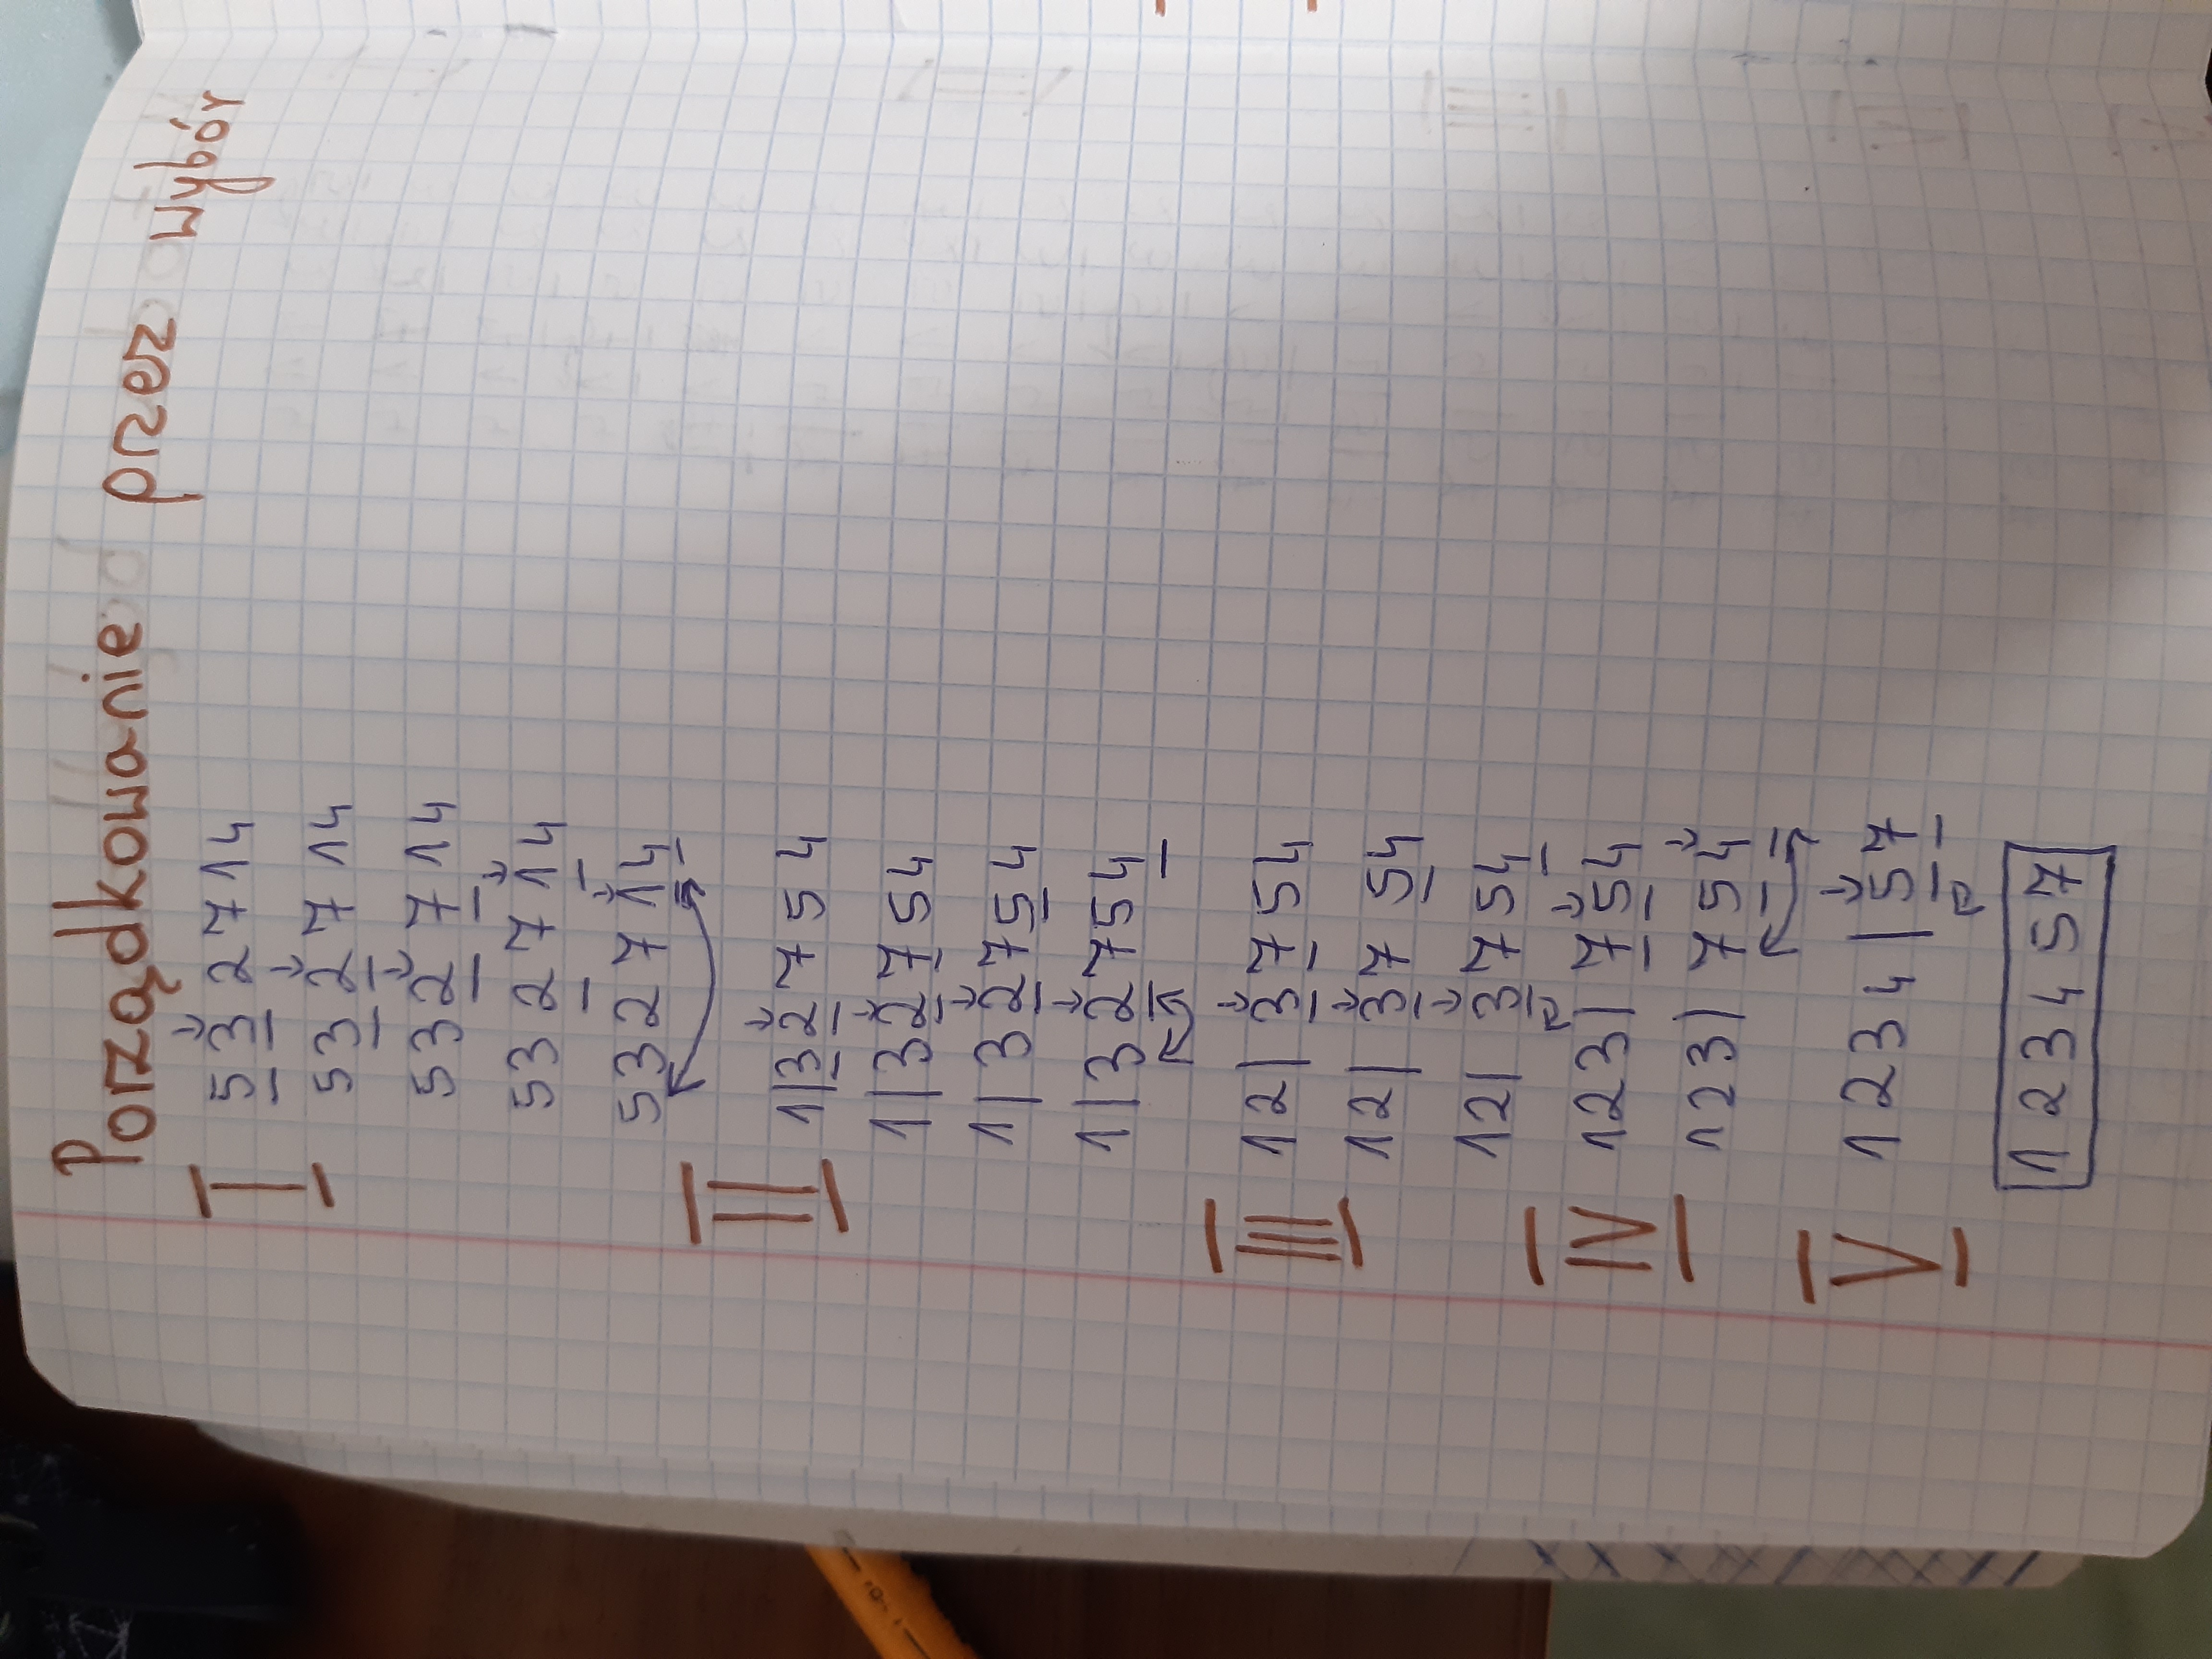 Porządkowanie przez wybór
I 5 3 2 7 1 4
5 3 2 7 1 4
5 3 2 7 1 4
5 3 2 7 1 4
5 3 2 7 1 4
II 1 | 3 2 7 5 4
1 | 3 2 7 5 4
1 | 3 2 7 5 4
1 | 3 2 7 5 4
III 1 2 | 3 7 5 4
1 2 | 3 7 5 4
1 2 | 3 7 5 4
IV 1 2 3 | 7 5 4
1 2 3 | 7 5 4
V 1 2 3 4 | 5 7
1 2 3 4 5 7